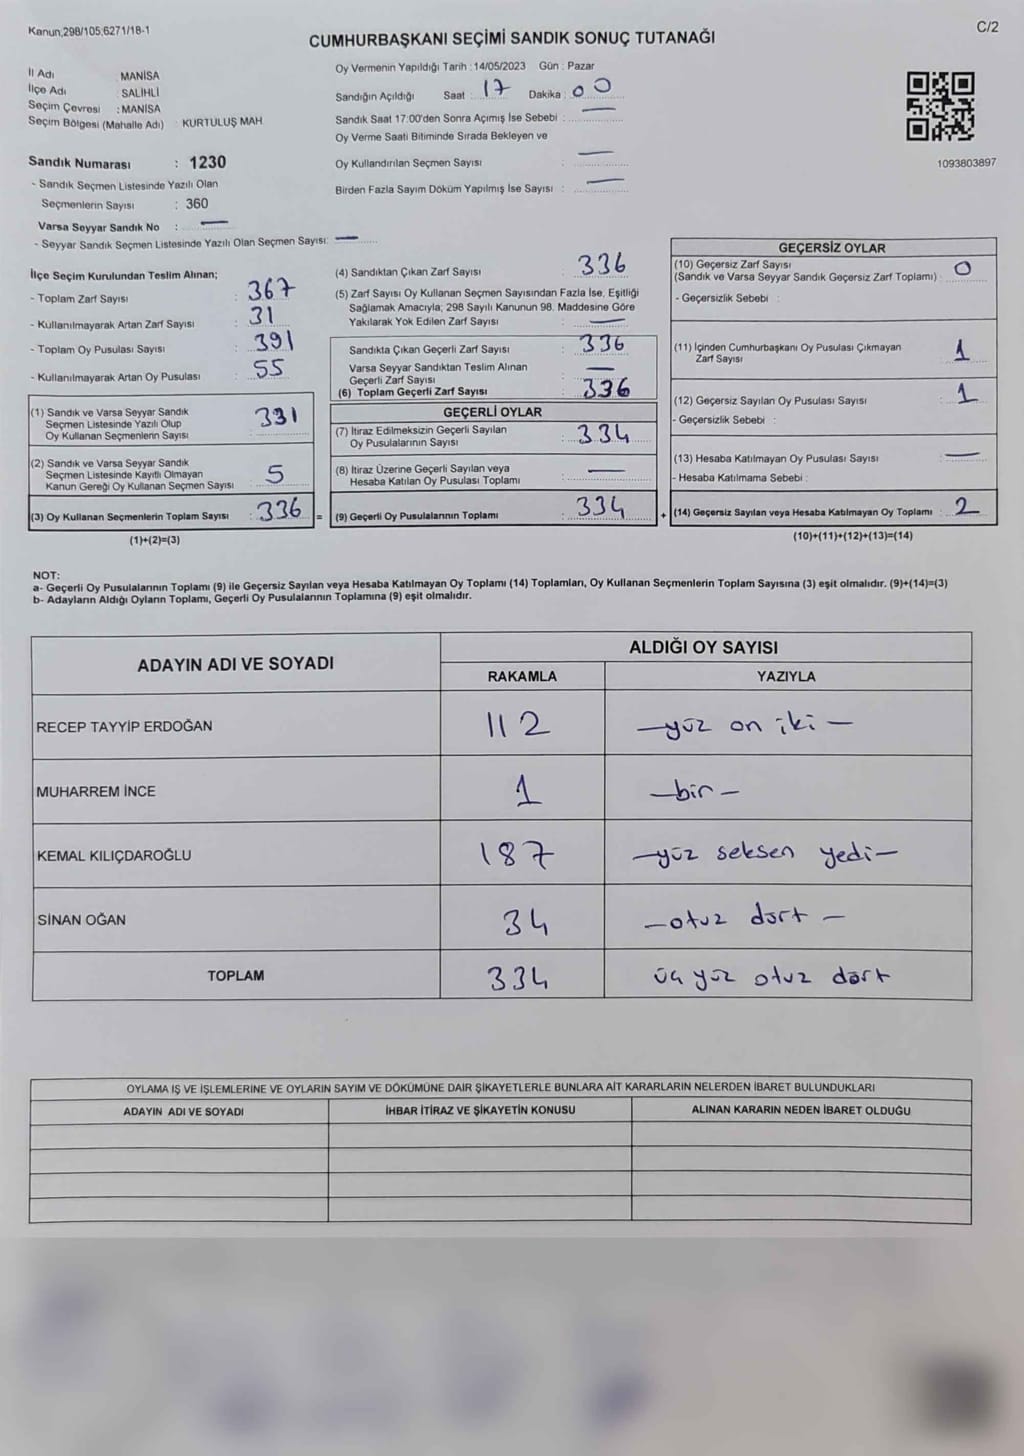 Kanun,298/105,6271/18-1
C/2
CUMHURBAŞKANI SEÇİMİ SANDIK SONUÇ TUTANAĞI
İl Adı : MANİSA
İlçe Adı : SALİHLİ
Seçim Çevresi : MANİSA
Seçim Bölgesi (Mahalle Adı) : KURTULUŞ MAH.
Sandık Numarası : 1230
- Sandık Seçmen Listesinde Yazılı Olan
Seçmenlerin Sayısı : 360
Varsa Seyyar Sandık No : —
- Seyyar Sandık Seçmen Listesinde Yazılı Olan Seçmen Sayısı: —
Oy Vermenin Yapıldığı Tarih : 14/05/2023 Gün : Pazar
Sandığın Açıldığı Saat : 17 Dakika : 00
Sandık Saat 17:00'den Sonra Açımış İse Sebebi : —
Oy Verme Saati Bitiminde Sırada Bekleyen ve
Oy Kullandırılan Seçmen Sayısı : —
Birden Fazla Sayım Döküm Yapılmış İse Sayısı : —
1093803897
İlçe Seçim Kurulundan Teslim Alınan;
- Toplam Zarf Sayısı : 367
- Kullanılmayarak Artan Zarf Sayısı : 31
- Toplam Oy Pusulası Sayısı : 391
- Kullanılmayarak Artan Oy Pusulası : 55
(1) Sandık ve Varsa Seyyar Sandık
Seçmen Listesinde Yazılı Olup
Oy Kullanan Seçmenlerin Sayısı : 331
(2) Sandık ve Varsa Seyyar Sandık
Seçmen Listesinde Kayıtlı Olmayan
Kanun Gereği Oy Kullanan Seçmen Sayısı : 5
(3) Oy Kullanan Seçmenlerin Toplam Sayısı : 336 =
(1)+(2)=(3)
(4) Sandıktan Çıkan Zarf Sayısı : 336
(5) Zarf Sayısı Oy Kullanan Seçmen Sayısından Fazla İse, Eşitliği
Sağlamak Amacıyla; 298 Sayılı Kanunun 98. Maddesine Göre
Yakılarak Yok Edilen Zarf Sayısı : —
Sandıkta Çıkan Geçerli Zarf Sayısı : 336
Varsa Seyyar Sandıktan Teslim Alınan
Geçerli Zarf Sayısı : —
(6) Toplam Geçerli Zarf Sayısı : 336
GEÇERLİ OYLAR
(7) İtiraz Edilmeksizin Geçerli Sayılan
Oy Pusulalarının Sayısı : 334
(8) İtiraz Üzerine Geçerli Sayılan veya
Hesaba Katılan Oy Pusulası Toplamı : —
(9) Geçerli Oy Pusulalarının Toplamı : 334 +
GEÇERSİZ OYLAR
(10) Geçersiz Zarf Sayısı
(Sandık ve Varsa Seyyar Sandık Geçersiz Zarf Toplamı) : 0
- Geçersizlik Sebebi :
(11) İçinden Cumhurbaşkanı Oy Pusulası Çıkmayan
Zarf Sayısı : 1
(12) Geçersiz Sayılan Oy Pusulası Sayısı : 1
- Geçersizlik Sebebi :
(13) Hesaba Katılmayan Oy Pusulası Sayısı : —
- Hesaba Katılmama Sebebi :
(14) Geçersiz Sayılan veya Hesaba Katılmayan Oy Toplamı : 2
(10)+(11)+(12)+(13)=(14)
NOT:
a- Geçerli Oy Pusulalarının Toplamı (9) ile Geçersiz Sayılan veya Hesaba Katılmayan Oy Toplamı (14) Toplamları, Oy Kullanan Seçmenlerin Toplam Sayısına (3) eşit olmalıdır. (9)+(14)=(3)
b- Adayların Aldığı Oyların Toplamı, Geçerli Oy Pusulalarının Toplamına (9) eşit olmalıdır.
ADAYIN ADI VE SOYADI
ALDIĞI OY SAYISI
RAKAMLA YAZIYLA
RECEP TAYYİP ERDOĞAN 112 —yüz on iki—
MUHARREM İNCE 1 —bir—
KEMAL KILIÇDAROĞLU 187 —yüz seksen yedi—
SİNAN OĞAN 34 —otuz dört—
TOPLAM 334 üç yüz otuz dört
OYLAMA İŞ VE İŞLEMLERİNE VE OYLARIN SAYIM VE DÖKÜMÜNE DAİR ŞİKAYETLERLE BUNLARA AİT KARARLARIN NELERDEN İBARET BULUNDUKLARI
ADAYIN ADI VE SOYADI İHBAR İTİRAZ VE ŞİKAYETİN KONUSU ALINAN KARARIN NEDEN İBARET OLDUĞU